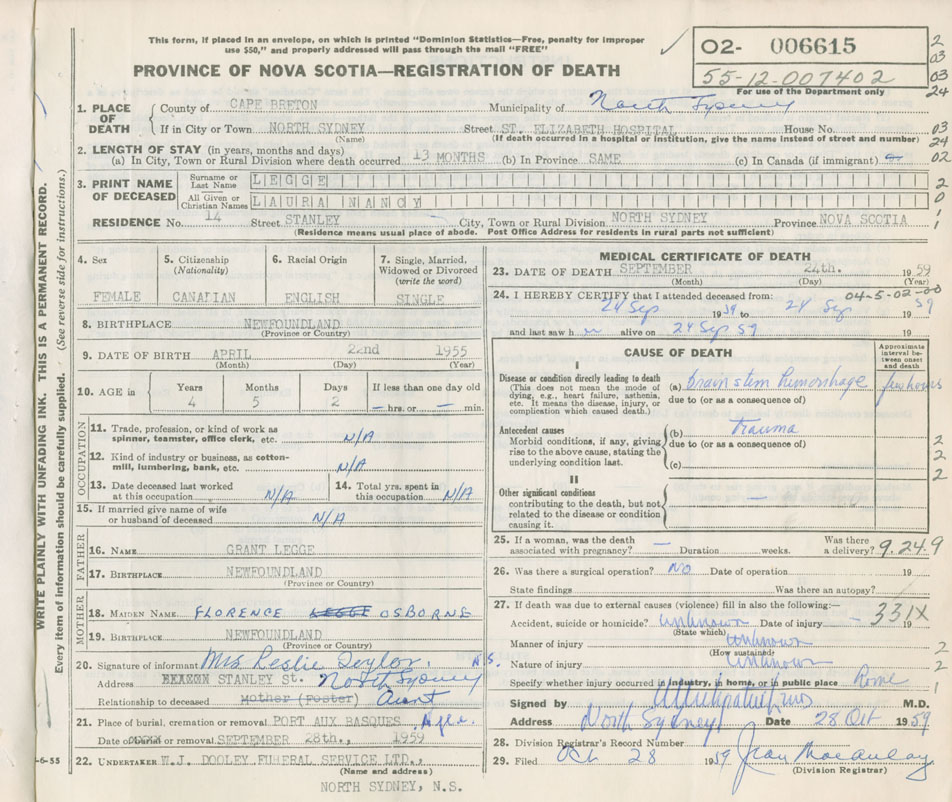 This form, if placed in an envelope, on which is printed "Dominion Statistics—Free, penalty for improper
use $50," and properly addressed will pass through the mail "FREE"
PROVINCE OF NOVA SCOTIA—REGISTRATION OF DEATH
02- 006615
55-12-007402
For use of the Department only
2
03
03
24
1. PLACE OF DEATH
County of CAPE BRETON Municipality of North Sydney
If in City or Town NORTH SYDNEY Street ST. ELIZABETH HOSPITAL House No.
(Name) (If death occurred in a hospital or institution, give the name instead of street and number)
03
24
02
2. LENGTH OF STAY (in years, months and days)
(a) In City, Town or Rural Division where death occurred 13 MONTHS (b) In Province SAME (c) In Canada (if immigrant)
3. PRINT NAME OF DECEASED
Surname or Last Name LEGGE
All Given or Christian Names LAURA NANCY
2
0
1
1
RESIDENCE No. 14 Street STANLEY City, Town or Rural Division NORTH SYDNEY Province NOVA SCOTIA
(Residence means usual place of abode. Post Office Address for residents in rural parts not sufficient)
4. Sex
FEMALE
5. Citizenship (Nationality)
CANADIAN
6. Racial Origin
ENGLISH
7. Single, Married, Widowed or Divorced (write the word)
SINGLE
8. BIRTHPLACE NEWFOUNDLAND
(Province or Country)
9. DATE OF BIRTH APRIL 22nd 1955
(Month) (Day) (Year)
10. AGE in Years Months Days If less than one day old
4 5 2 — hrs. or — min.
OCCUPATION
11. Trade, profession, or kind of work as
spinner, teamster, office clerk, etc. N/A
12. Kind of industry or business, as cotton-
mill, lumbering, bank, etc. N/A
13. Date deceased last worked
at this occupation N/A
14. Total yrs. spent in
this occupation N/A
15. If married give name of wife
or husband of deceased N/A
FATHER
16. NAME GRANT LEGGE
17. BIRTHPLACE NEWFOUNDLAND
(Province or Country)
MOTHER
18. MAIDEN NAME FLORENCE LEGGE OSBORNE
19. BIRTHPLACE NEWFOUNDLAND
(Province or Country)
20. Signature of informant Mrs Leslie Taylor. N.S.
Address STANLEY St. North Sydney
Relationship to deceased Mother (Foster) Aunt
21. Place of burial, cremation or removal PORT AUX BASQUES Nfld.
Date of burial or removal SEPTEMBER 28th., 1959
22. UNDERTAKER W.J. DOOLEY FUNERAL SERVICE LTD.,
(Name and address)
NORTH SYDNEY, N.S.
MEDICAL CERTIFICATE OF DEATH
23. DATE OF DEATH SEPTEMBER 24th. 1959
(Month) (Day) (Year)
24. I HEREBY CERTIFY that I attended deceased from: 04-5-02-00
24 Sep 1959 to 24 Sep 59
and last saw h er alive on 24 Sep 59 19
CAUSE OF DEATH
Approximate interval between onset and death
I
Disease or condition directly leading to death (a) brain stem hemorrhage few hours
(This does not mean the mode of
dying, e.g., heart failure, asthenia,
etc. It means the disease, injury, or
complication which caused death.)
due to (or as a consequence of)
Antecedent causes (b) trauma
Morbid conditions, if any, giving
rise to the above cause, stating the
underlying condition last.
due to (or as a consequence of)
(c)
2
2
2
II
Other significant conditions
contributing to the death, but not
related to the disease or condition
causing it. —
25. If a woman, was the death
associated with pregnancy? — Duration weeks. Was there
a delivery? 9.24.9
26. Was there a surgical operation? NO Date of operation 19
State findings Was there an autopsy?
27. If death was due to external causes (violence) fill in also the following:— 331X
Accident, suicide or homicide? unknown Date of injury — 19 —
(State which)
Manner of injury unknown 2
(How sustained)
Nature of injury unknown 2
Specify whether injury occurred in industry, in home, or in public place Home 1
Signed by M.D.
Address North Sydney Date 28 Oct 1959
28. Division Registrar's Record Number
29. Filed Oct 28 1959 Jean Macaulay
(Division Registrar)
WRITE PLAINLY WITH UNFADING INK. THIS IS A PERMANENT RECORD.
Every item of information should be carefully supplied. (See reverse side for instructions.)
-6-55